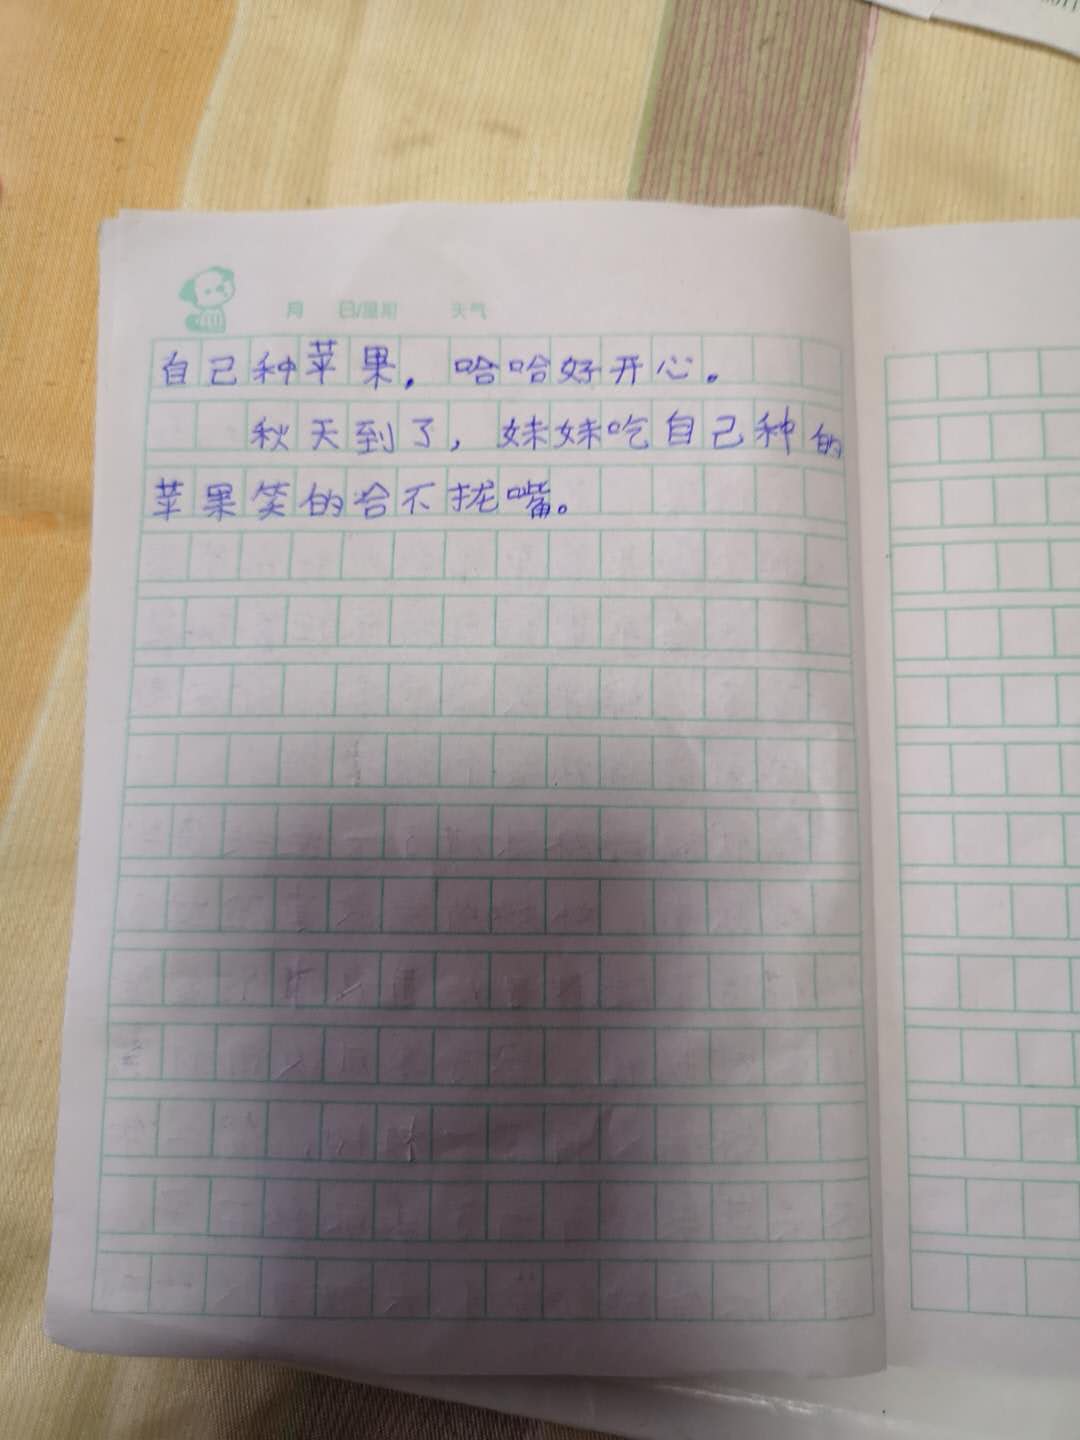 月 日/星期 天气
自己种苹果，哈哈好开心。
秋天到了，妹妹吃自己种的
苹果笑的合不拢嘴。